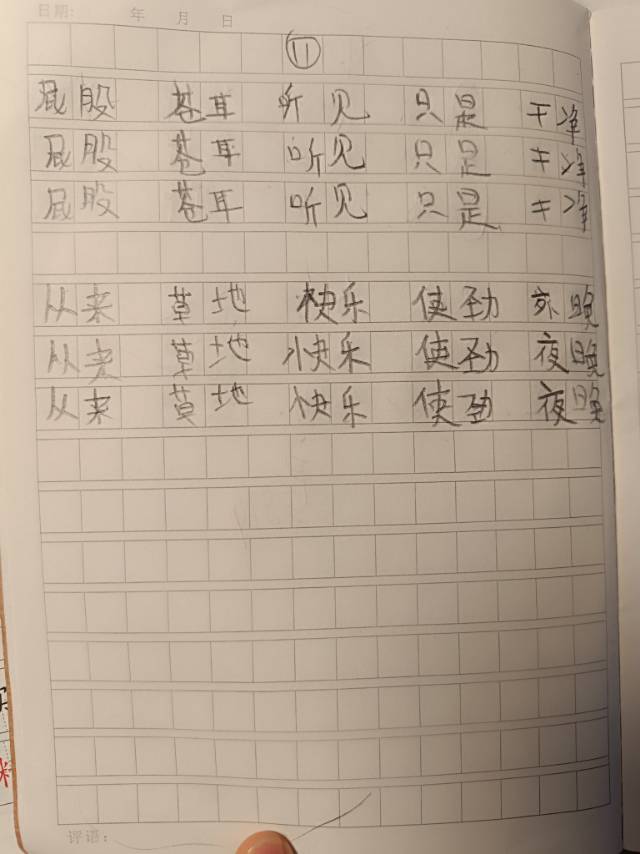 日期： 年 月 日
11
屁股 苍耳 听见 只是 干净
屁股 苍耳 听见 只是 干净
屁股 苍耳 听见 只是 干净
从来 草地 快乐 使劲 夜晚
从来 草地 快乐 使劲 夜晚
从来 草地 快乐 使劲 夜晚
评语：